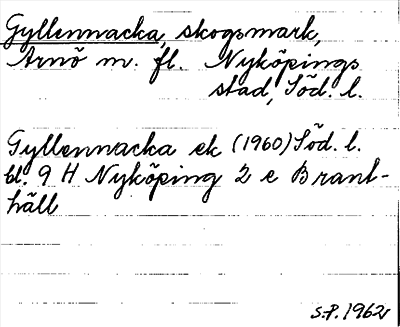 Gyllennacka, skogsmark,
Arnö m. fl. Nyköpings
stad, Söd. l.
Gyllennacka ek (1960) Söd. l.
bl. 9 H Nyköping 2 e Brant-
häll
S.P. 1962